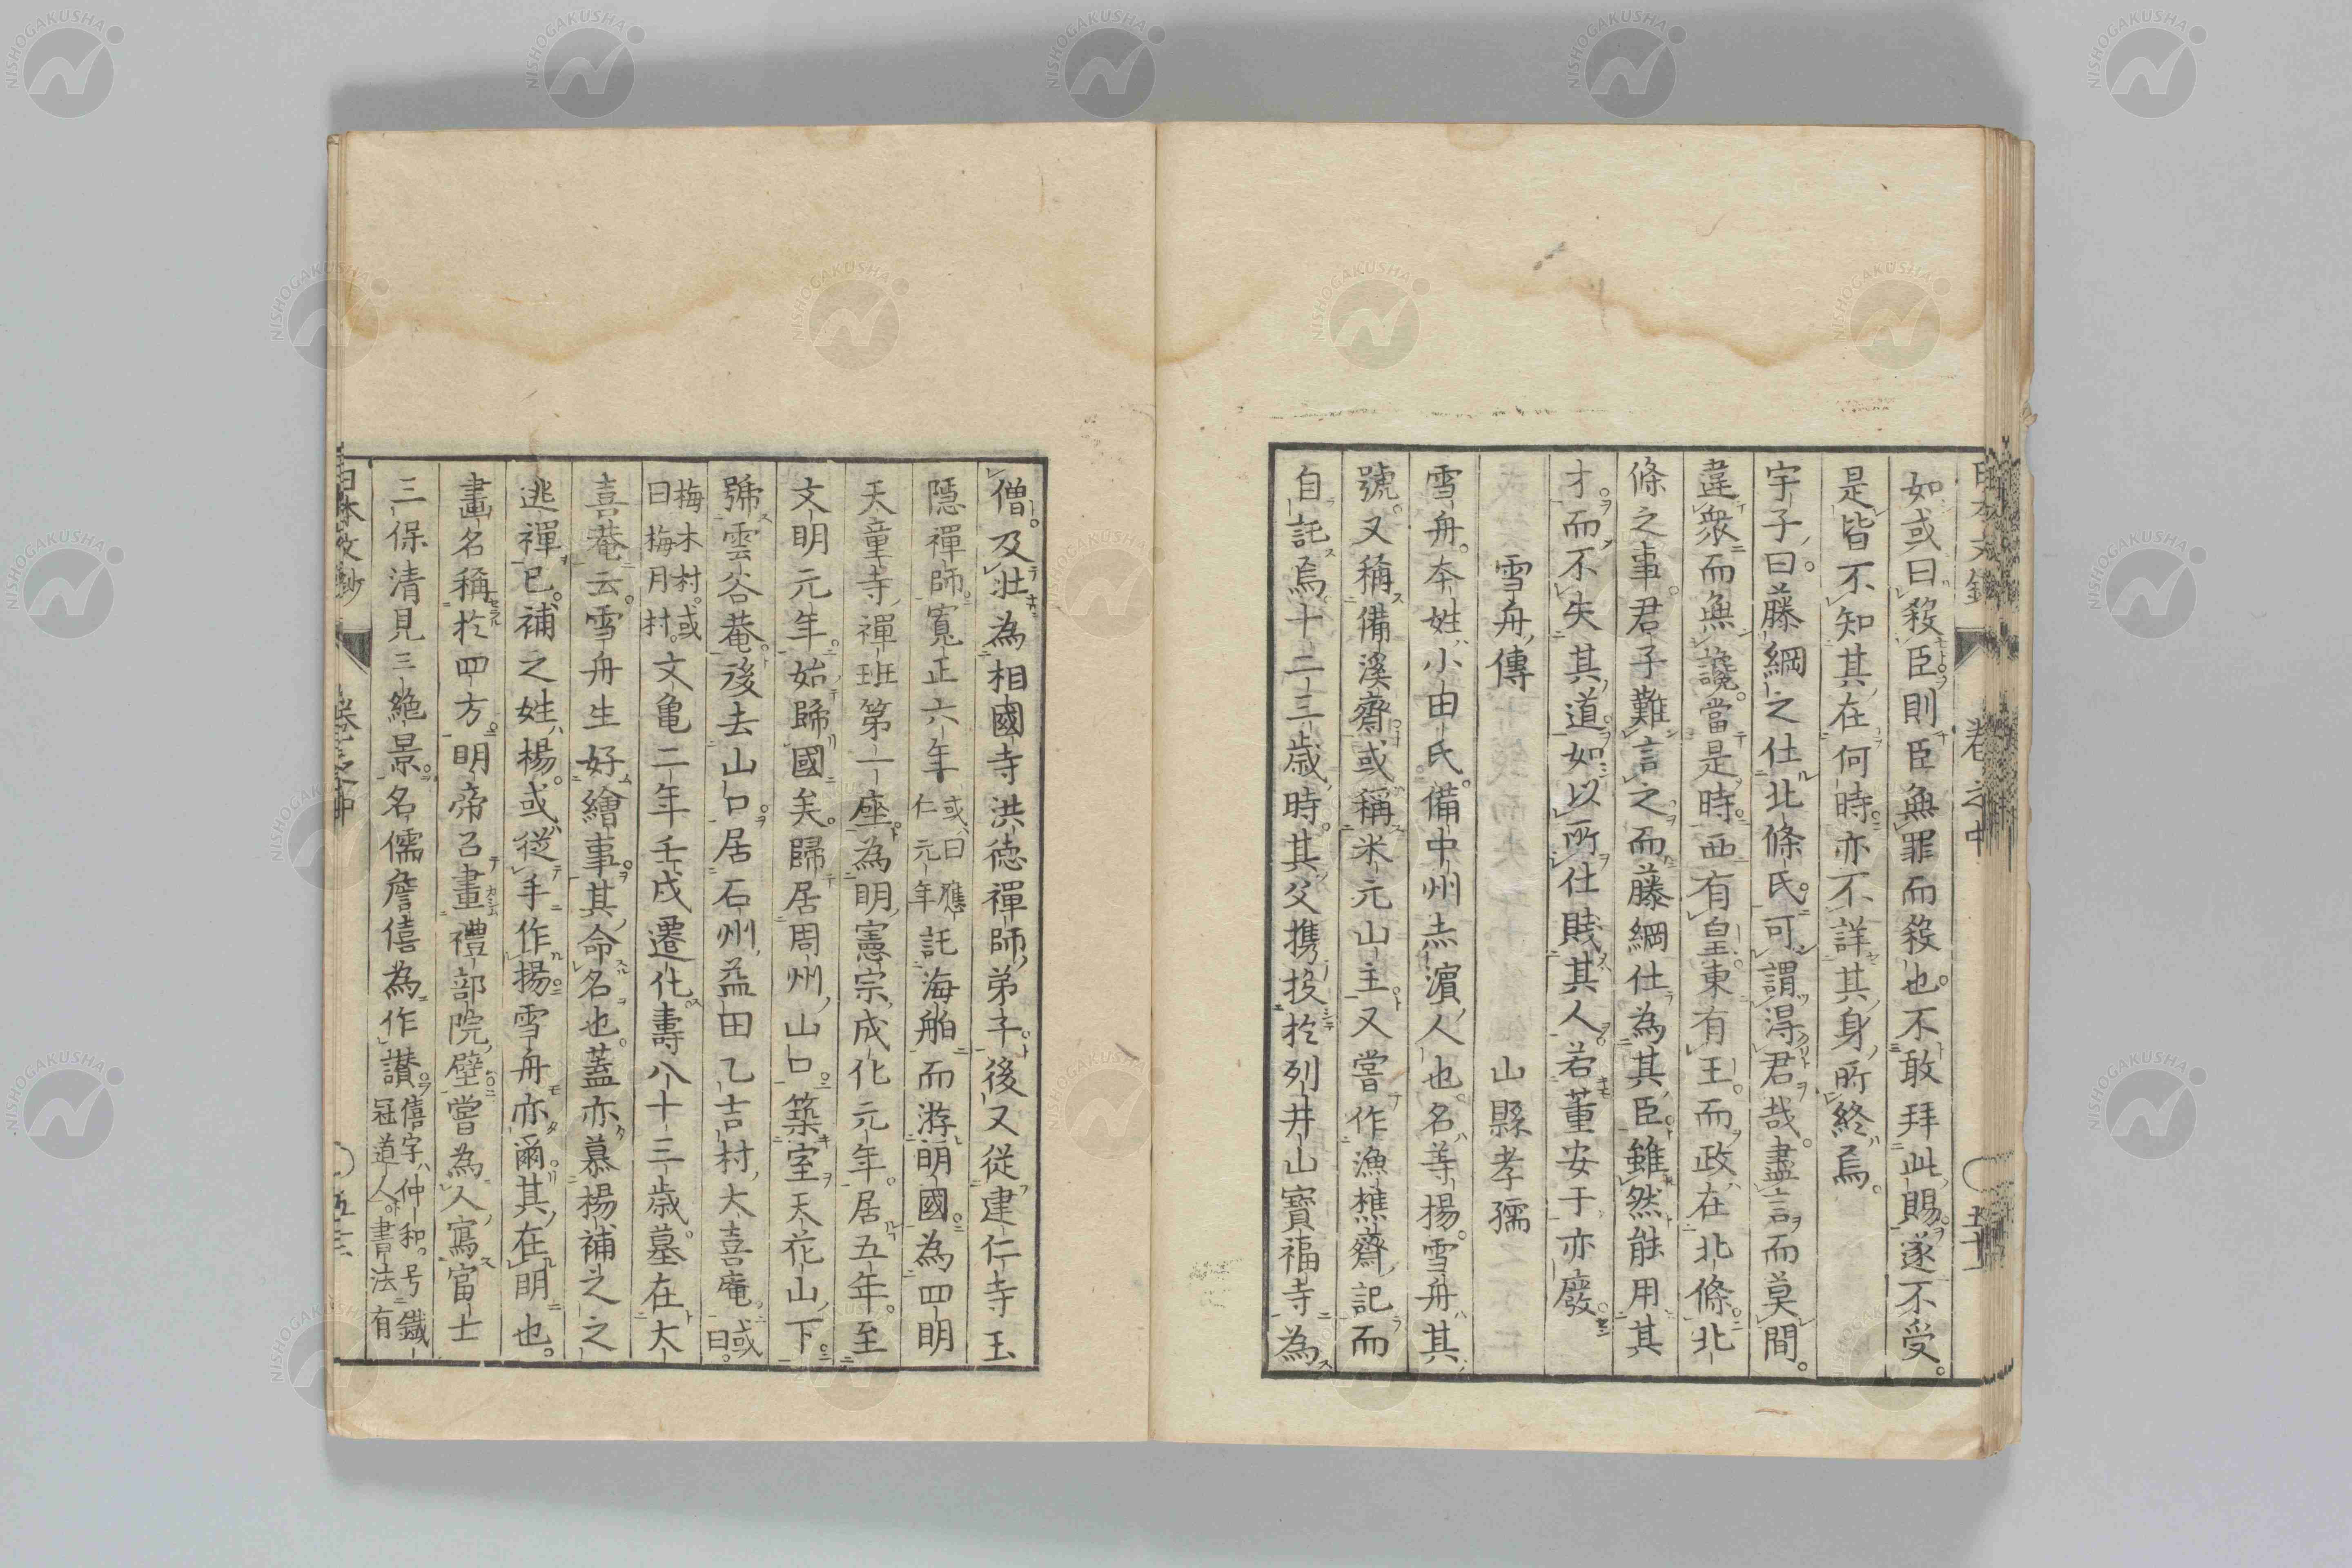 如或曰殺臣則臣無罪而殺也不敢拜此賜遂不受。
是皆不知其在何時亦不詳其身所終焉。
宇子曰。藤綱之仕北條氏可謂得君哉。盡言而莫間。
違衆而無讒。當是時。西有皇。東有王。而政在北條。北
條之事。君子難言之。而藤綱仕為其臣。雖然能用其
才。而不失其道。如以所仕賤其人。若董安于亦廢。
雪舟傳 山縣孝孺
雪舟。本姓小田氏。備中州赤濱人也。名等揚。雪舟其
號。又稱備溪齋。或稱米元山主。又嘗作漁樵齋記而
自託焉。十二三歲時。其父携投於列井山寶福寺為
僧。及壯為相國寺洪徳禪師弟子。後又従建仁寺玉
隱禪師。寬正六年或曰應仁元年託海舶而游明國。為四明
天童寺禪班第一座。為明憲宗成化元年。居五年。至
文明元年。始歸國矣。歸居周州山口。築室天花山下。
號雲谷菴。後去山口。居石州益田乙吉村大喜庵。或曰。
梅木村。或曰梅月村。文亀二年壬戌遷化。壽八十三歲。墓在大
喜菴云。雪舟生好繪事。其命名也。蓋亦慕楊補之之
逃禪已。補之姓楊。或従手作揚。雪舟亦爾。其在明也。
畫名稱於四方。明帝召畫禮部院壁。嘗為人寫富士
三保清見三絶景。名儒詹僖為作讃。僖字仲和。号鐵冠道人。書法有
日本文鈔 卷之中